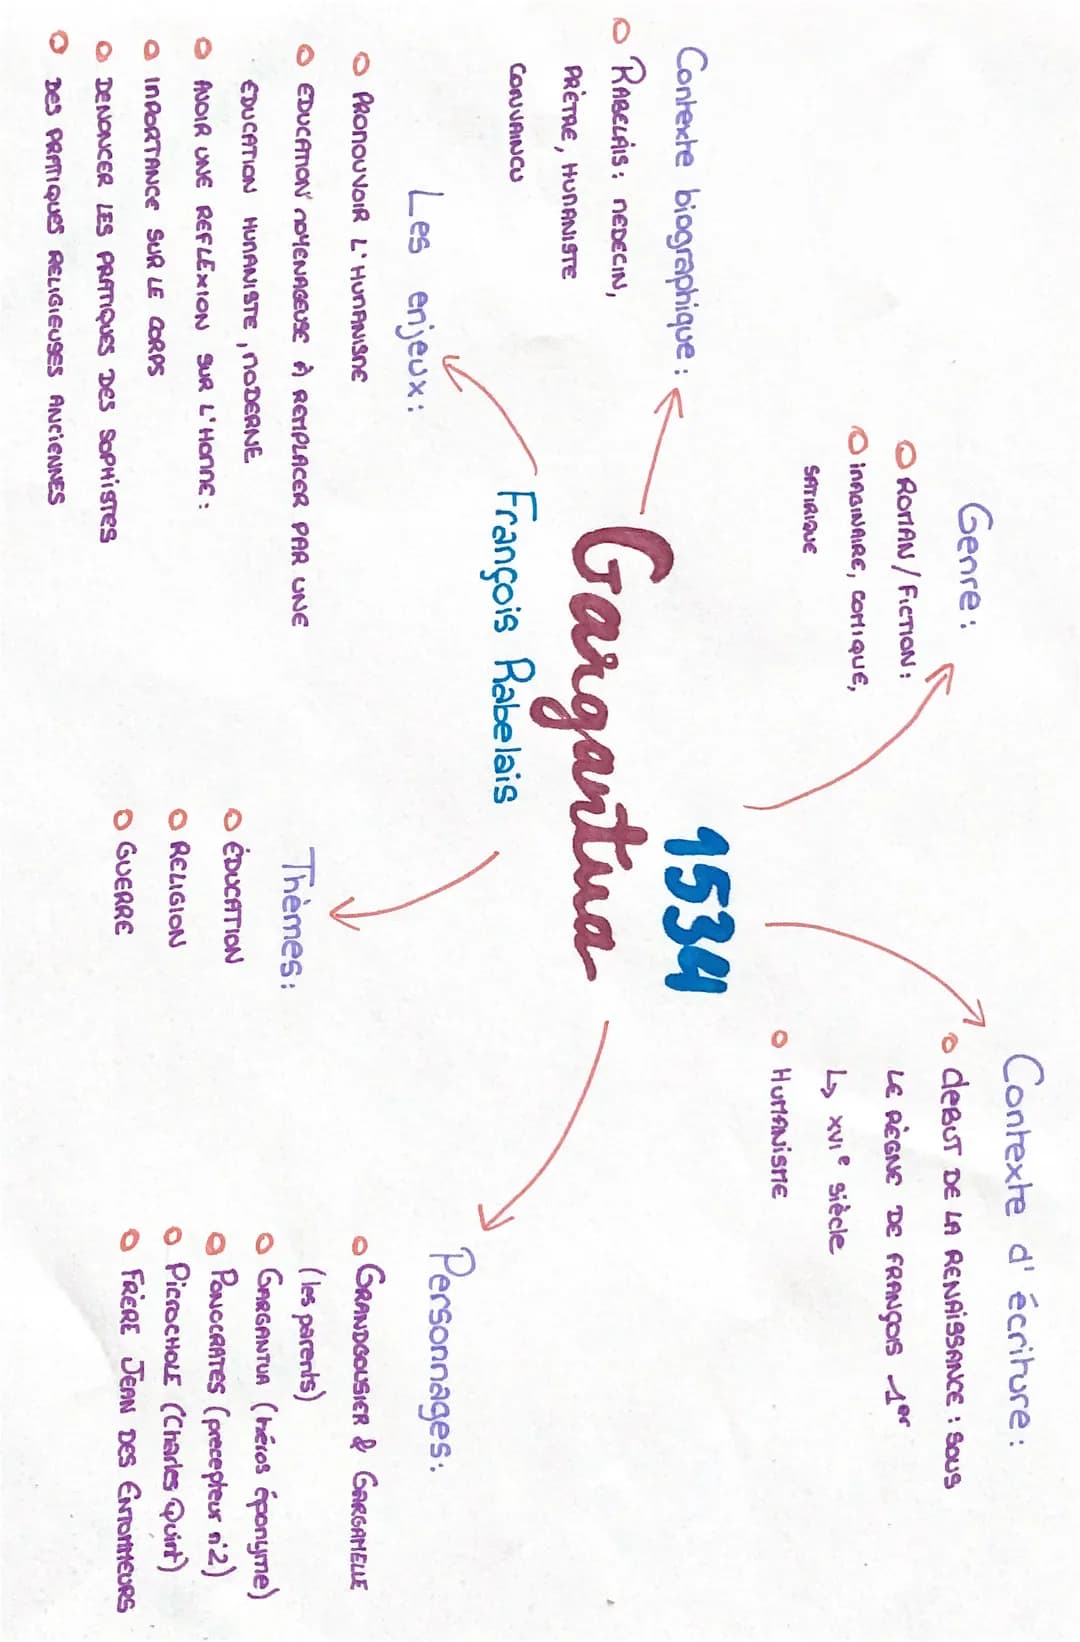 Genre :
ROMAN / FICTION :
iMAGINAIRE, COMIQUE,
SATIRIQUE
Contexte d'écriture :
deBUT DE LA RENAISSANCE : SOUS
LE RÈGNE DE FRANÇOIS 1er
↳ XVIe siècle
HUMANISME
Contexte biographique :
RABELAIS : MEDECIN,
PRÊTRE, HUMANISTE
CONVAINCU
1534
Gargantua
François Rabelais
Les enjeux :
PROMOUVOIR L'HUMANISME
EDUCATION MOYENAGEUSE À REMPLACER PAR UNE
EDUCATION HUMANISTE, MODERNE
AVOIR UNE REFLEXION SUR L'HOMME :
IMPORTANCE SUR LE CORPS
DENONCER LES PRATIQUES DES SOPHISTES
DES PRATIQUES RELIGIEUSES ANCIENNES
Thèmes :
ÉDUCATION
RELIGION
GUERRE
Personnages :
GRANDGOUSIER & GARGAMELLE
(les parents)
GARGANTUA (héros éponyme)
PONOCRATES (precepteur n°2)
PICROCHOLE (Charles Quint)
FRÈRE JEAN DES ENTOMMEURS